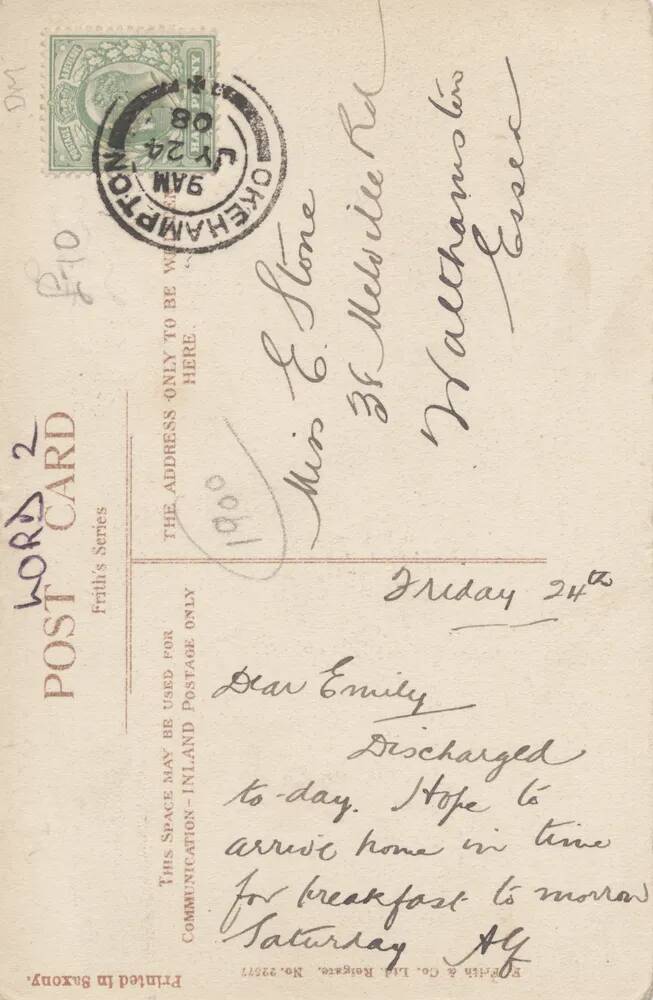 POST CARD
Frith's Series
THE ADDRESS ONLY TO BE WRITTEN
HERE.
THIS SPACE MAY BE USED FOR
COMMUNICATION - INLAND POSTAGE ONLY
OKEHAMPTON
9 AM
JY 24
08
LORD 2
1900
DM
Miss E. Stone
Melville Rd
Walthamstow
Essex
Friday 24th
Dear Emily
Discharged
to-day. Hope to
arrive home in time
for breakfast to morrow
Saturday
F. Frith & Co. Ltd. Reigate. No. 22577
Printed in Saxony.